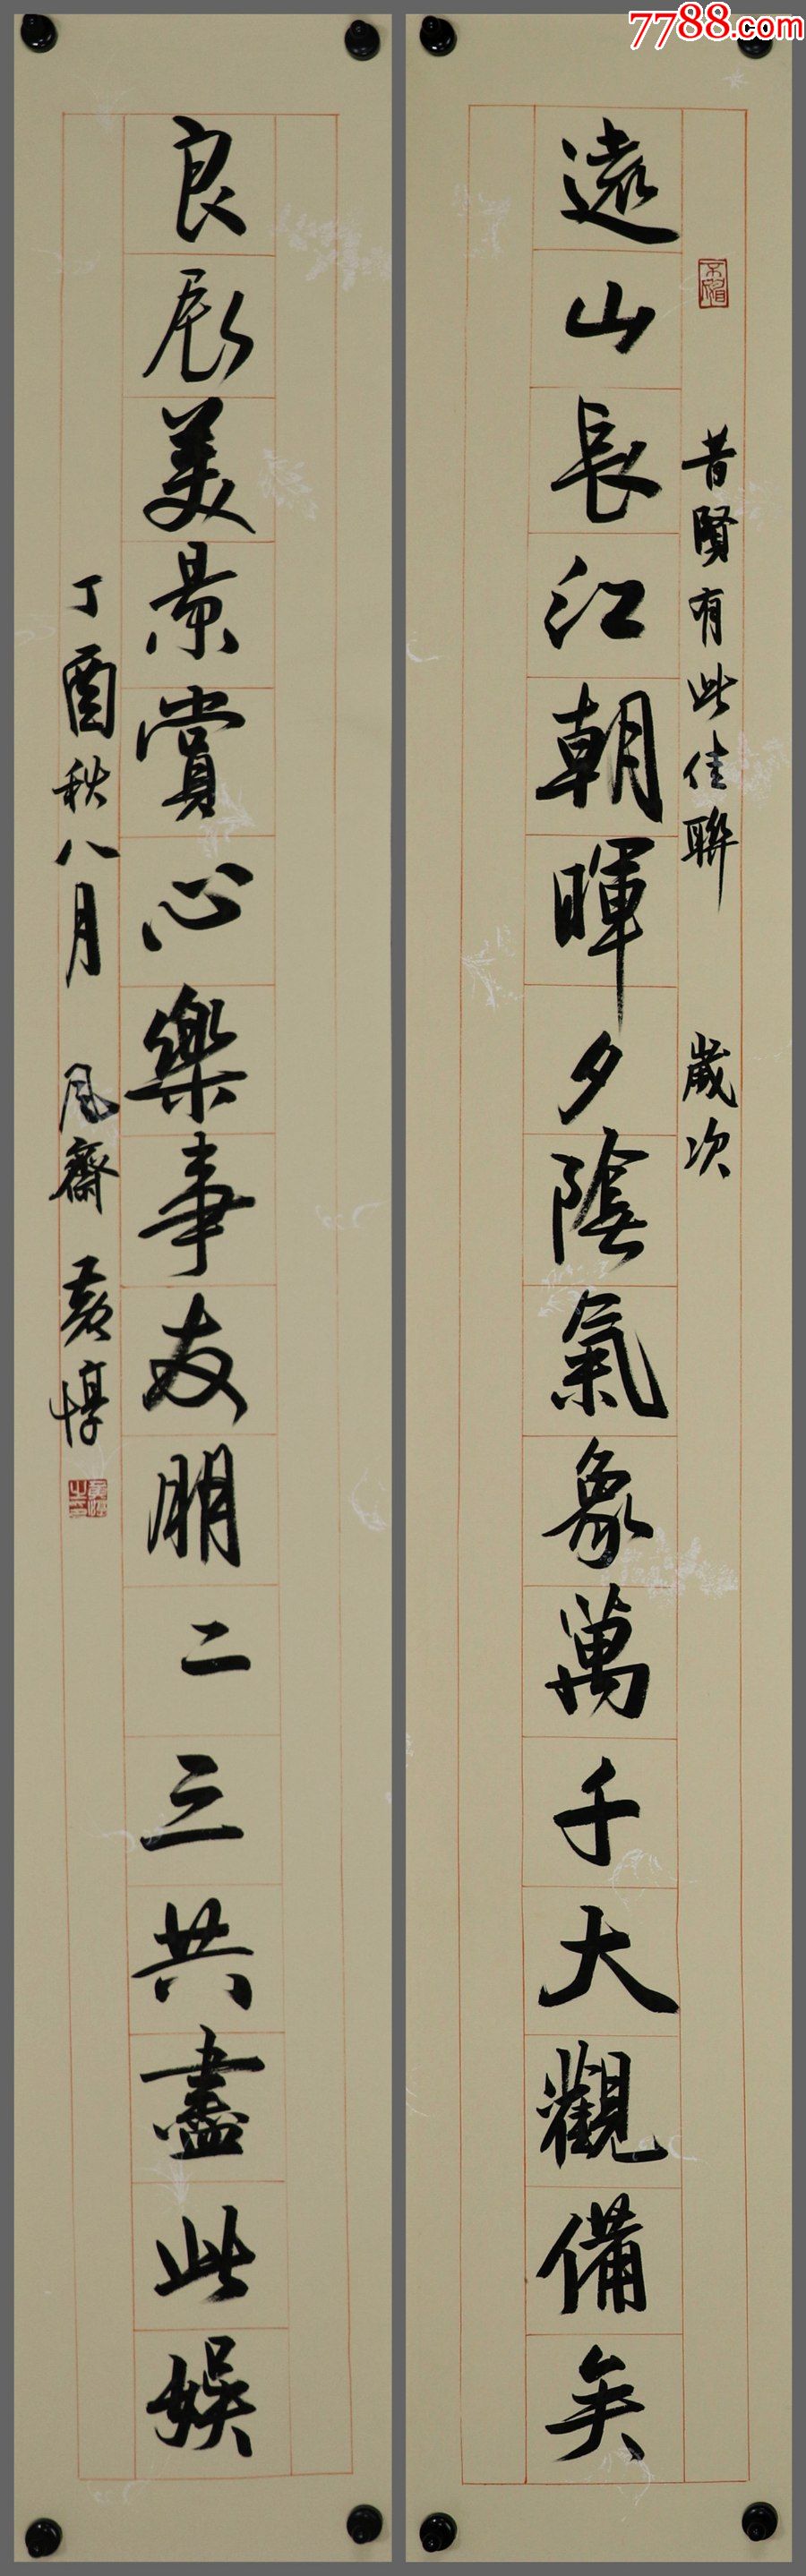 7788.com
昔賢有此佳聯 歲次
遠山長江朝暉夕陰氣象萬千大觀備矣
良辰美景賞心樂事友朋二三共盡此娛
丁酉秋八月 風齋 黃惇